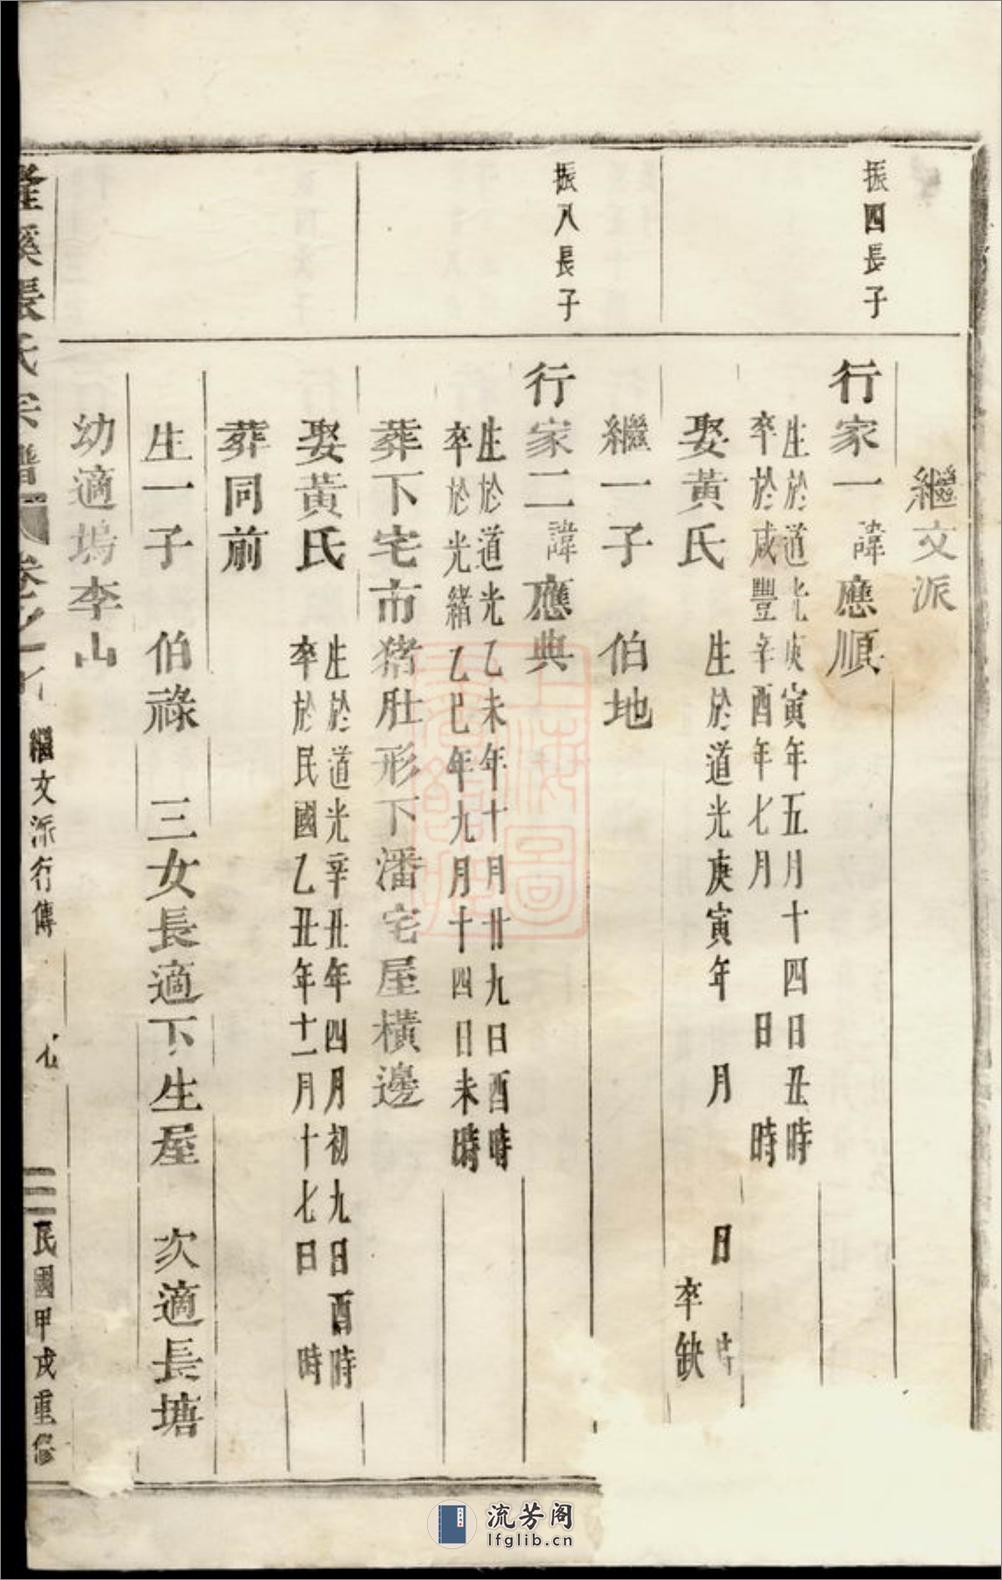 繼文派
振四長子
行家一諱應順
生於道光庚寅年五月十四日丑時
卒於咸豐辛酉年七月 日 時
娶黃氏
生於道光庚寅年 月 日 時
卒缺
繼一子 伯地
振八長子
行家二諱應典
生於道光乙未年十月廿九日酉時
卒於光緒乙巳年九月十四日未時
葬下宅市猪肚形下潘宅屋橫邊
娶黃氏
生於道光辛丑年四月初九日酉時
卒於民國乙丑年十一月十七日 時
葬同前
生一子 伯祿 三女長適下生屋 次適長塘
幼適塢李山
溪張氏宗譜 卷之
繼文派行傳
民國甲戌重修
上海圖
流芳阁
lfglib.cn